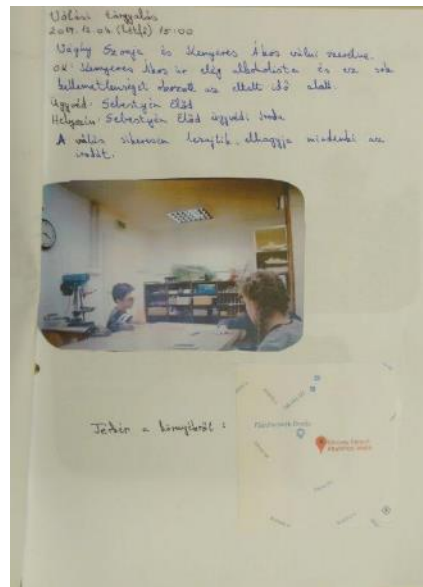 Válási tárgyalás
2017.12.04. (hétfő) 15:00
Vágány Szonja és Kenyeres Ákos válni szeretne.
OK: Kenyeres Ákos úr elég alkoholista és ez sok
kellemetlenséget okozott az eltelt idő alatt.
Ügyvéd: Sebestyén Előd
Helyszín: Sebestyén Előd ügyvédi iroda
A válás sikeresen lezajlik, elhagyja mindenki az
irodát.
Térkép a környékről: